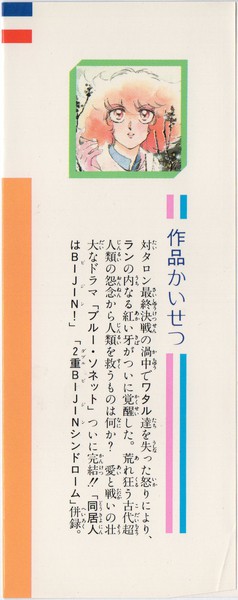 作品かいせつ
対タロン最終決戦の渦中でワタル達を失った怒りにより、
ランの内なる紅い牙がついに覚醒した。荒れ狂う古代超
人類の怨念から人類を救うものは何か？ 愛と戦いの壮
大なドラマ「ブルー・ソネット」ついに完結!!「同居人
はBIJIN！」「2重BIJINシンドローム」併録。